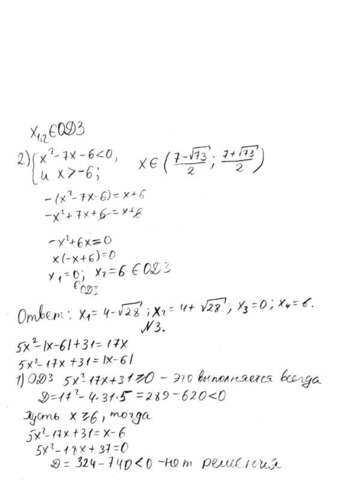 x₁,₂ ∈ ОДЗ
2) { x²-7x-6<0, x ∈ (7-√73/2; 7+√73/2)
и x>-6;
-(x²-7x-6)=x+6
-x²+7x+6=x+6
-x²+6x=0
x(-x+6)=0
x₁=0; x₂=6 ∈ ОДЗ
∈ ОДЗ
Ответ: x₁=4-√28; x₂=4+√28, x₃=0; x₄=6.
№3.
5x²-|x-6|+31=17x
5x²-17x+31=|x-6|
1) ОДЗ 5x²-17x+31≥0 - это выполняется всегда
D=17²-4·31·5=289-620<0
Пусть x≥6, тогда
5x²-17x+31=x-6
5x²-18x+37=0
D=324-740<0 - нет решения